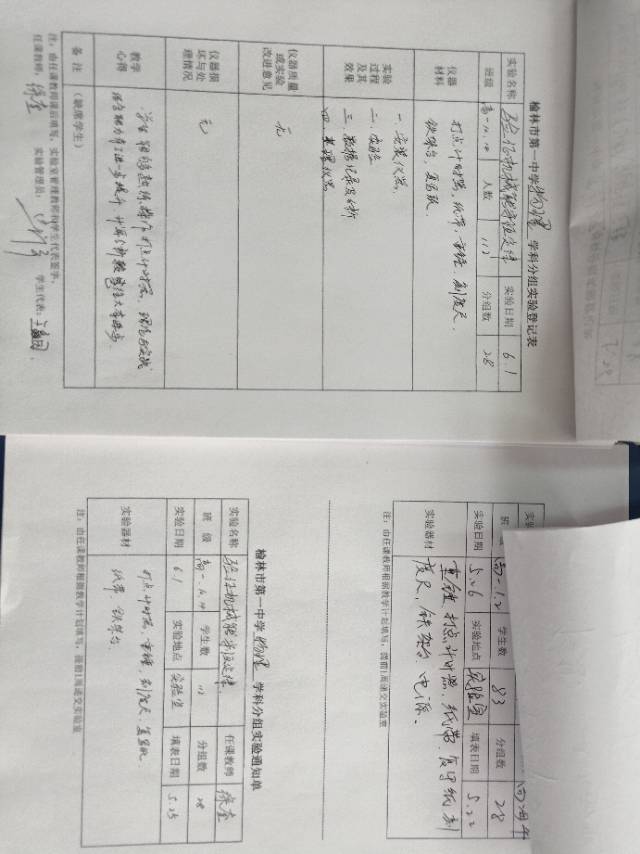 榆林市第一中学物理学科分组实验登记表
实验名称 验证机械能守恒定律 实验日期 6.1
班级 人数 112 分组数 28
仪器材料 打点计时器、纸带、重锤、刻度尺、
铁架台、复写纸
实验过程及其效果 一、安装仪器
二、实验
三、数据记录及分析
四、整理仪器
仪器质量或实验改进意见 无
仪器损坏与处理情况 无
教学心得
备注 (缺席学生)
注：由任课教师课后填写，实验室管理教师和学生代表签字。
任课教师： 实验管理员： 学生代表：
班级 高一1.2 学生数 83 分组数 28
实验日期 5.26 实验地点 实验室 填表日期 5.22
实验器材 重锤、打点计时器、纸带、复写纸、刻
度尺、铁架台、电源。
注：由任课教师根据教学计划填写，提前1周递交实验室
榆林市第一中学物理学科分组实验通知单
实验名称 验证机械能守恒定律 任课教师
班级 学生数 112 分组数 28
实验日期 6.1 实验地点 实验室 填表日期 5.25
实验器材 打点计时器、重锤、刻度尺、复写纸、
纸带、铁架台
注：由任课教师根据教学计划填写，提前1周递交实验室